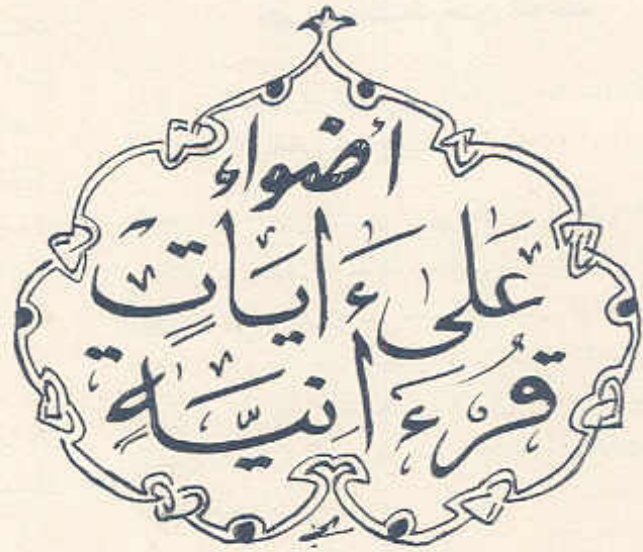 أضواء
عَلى ءَايَاتٍ
قُرءَانِيَّةٍ